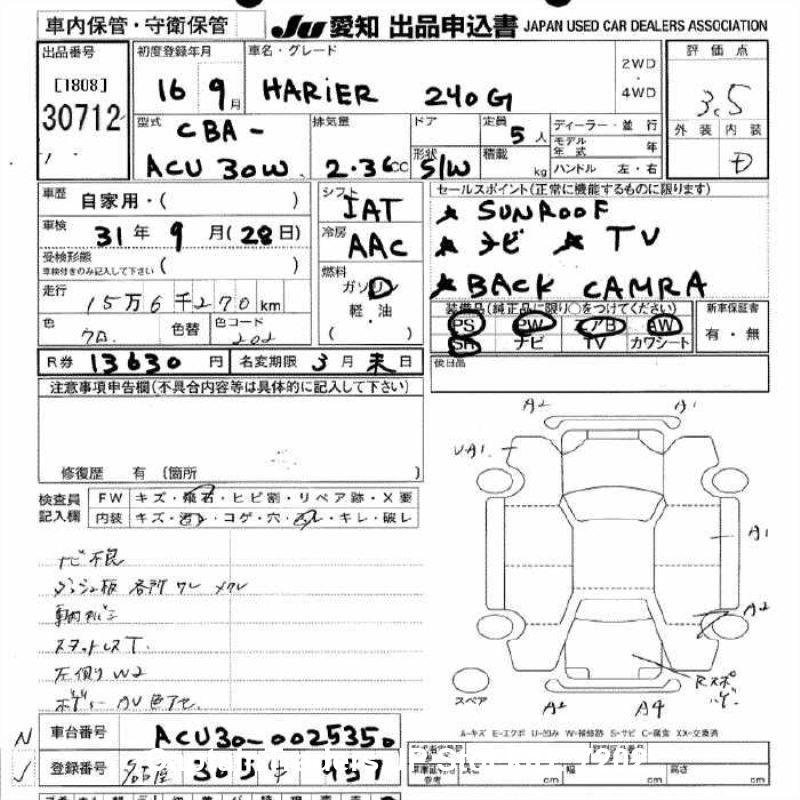 車内保管・守衛保管
JU 愛知 出品申込書 JAPAN USED CAR DEALERS ASSOCIATION
出品番号
[1808]
30712
初度登録年月
16 9月
車名・グレード
HARiER 240G
2WD
4WD
評価点
3.5
外装 内装
D
型式
CBA-
ACU 30W
排気量
2.36cc
ドア
形状
S/W
定員
5人
積載
kg
ディーラー・並行
モデル年式 年
ハンドル 左・右
車歴
自家用・( )
車検
31年 9月(28日)
受検形態
車検付きのみ記入して下さい ( )
走行
15万6千270km
色
クロ
色替
色コード
202
シフト
IAT
冷房
AAC
燃料
ガソリン
軽・油
( )
セールスポイント(正常に機能するものに限ります)
★ SUNROOF
★ ナビ ★ TV
★ BACK CAMRA
装備品(純正品に限り○をつけてください)
PS PW アB AW
SR ナビ TV カワシート
新車保証書
有・無
R券 13630円
名変期限 3月末日
後日品
注意事項申告欄(不具合内容等は具体的に記入して下さい)
修復歴 有 (箇所 )
検査員記入欄
FW キズ・飛石・ヒビ割・リペア跡・X要
内装 キズ・汚レ・コゲ・穴・スレ・キレ・破レ
ナビ不良
ダッシュ板 各所 ワレ メクレ
スタットレスT.
左側リW2
A2 A1
UA1
A1
A2
Rスポ
スペア
A2 A4
A-キズ E-エクボ U-凹み W-補修跡 S-サビ C-腐食 XX-交換済
車台番号
ACU30-0025350
登録番号
名古屋
長さ cm
幅 cm
高さ cm